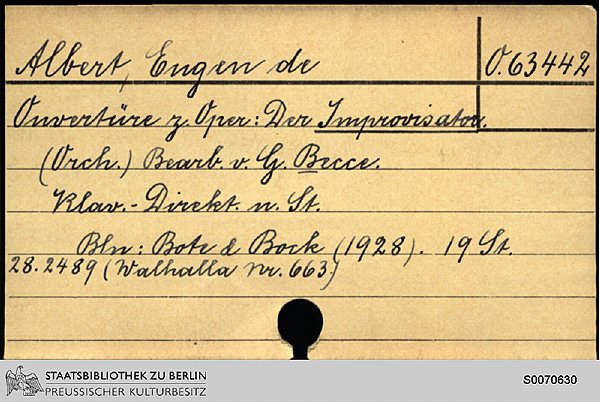 Albert, Eugen de
O. 63442
Ouvertüre z. Oper: Der Improvisator.
(Orch.) Bearb. v. G. Becce.
Klav.- Direkt. u. St.
Bln: Bote & Bock (1928). 19 St.
28.2489 (Walhalla Nr. 663.)
STAATSBIBLIOTHEK ZU BERLIN
PREUSSISCHER KULTURBESITZ
S0070630